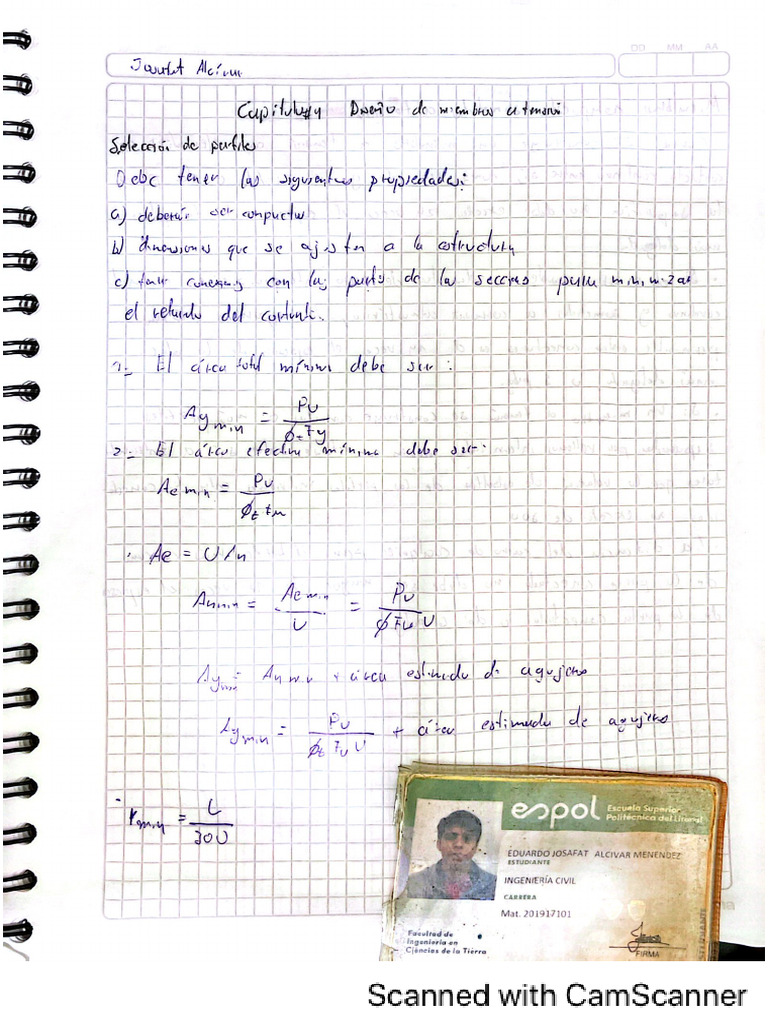 DD MM AA
Josafat Alcívar
Capitulo 4 Diseño de miembros a tensión
Selección de perfiles
Debe tener las siguientes propiedades:
a) deberán ser compactos
b) dimensiones que se ajusten a la estructura
c) tener conexiones con las partes de la secciones para minimizar
el retardo del cortante.
1.- El área total mínima debe ser:
Ag min = Pu / ϕt Fy
2.- El área efectiva mínima debe ser:
Ae min = Pu / ϕt Fu
· Ae = U An
An min = Ae min / U = Pu / ϕ Fu U
Ag min = An min + área estimada de agujeros
Ag min = Pu / ϕt Fu U + área estimada de agujeros
· rmin = L / 300
espol Escuela Superior
Politécnica del Litoral
EDUARDO JOSAFAT ALCIVAR MENENDEZ
ESTUDIANTE
INGENIERÍA CIVIL
CARRERA
Mat. 201917101
Facultad de
Ingeniería en
Ciencias de la Tierra
FIRMA
Scanned with CamScanner